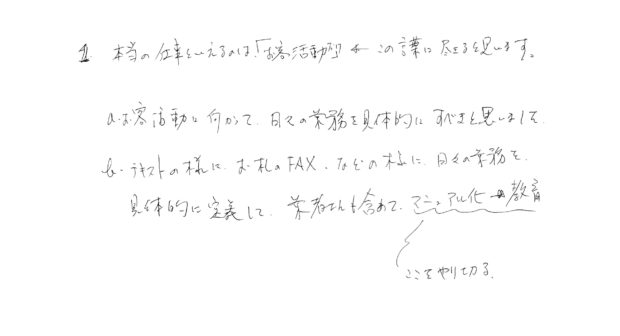 1. 本当の仕事といえるのは、「お客活動」← この言葉に尽きると思います。
a. お客活動に向かって、日々の業務を具体的にすべきと思いまして
b. テキストの様に、お礼のFAX、などの様に、日々の業務を、
具体的に定義して、業者さんも含めて、マニュアル化→教育
ここをやり切る。